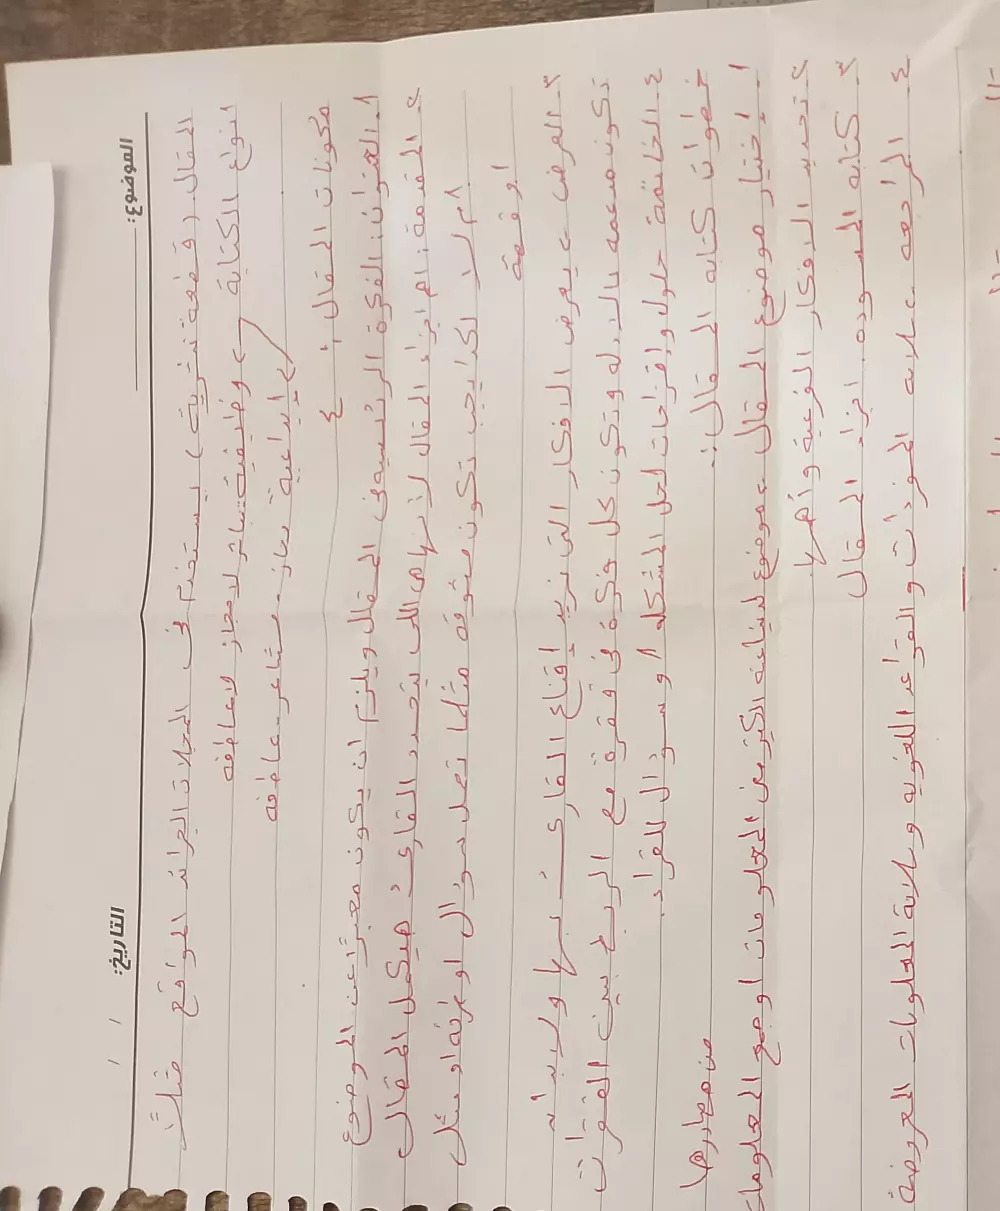 الموضوع: التاريخ: / /
المقال (قطعة نثرية) يستخدم فى المجلات الجرائد المواقع مثلاً
انواع الكتابة → وظيفية مباشر لا مجاز لا عاطفه
→ ابداعية مجاز - مشاعر - عاطفه
مكونات المقال : ٤
١- العنوان: الفكرة الرئسيه فى المقال ويلزم ان يكون معبرًا عن الموضوع
٢- المقدمة: اهم اجزاء المقال لأنها هى اللى بتحدد القارئ هيكمل المقال
ام لا لذا يجب تكون مشوقه مثلما تعمل سؤال او مثل
او قصة
٣- العرض ← يعرض الافكار التى نريد إقناع القارئ بها ولابد أن
تكون مدعمه بالادله وتكون كل فكرة فى فقرة مع الربط بين الفقرات
٤- الخاتمة حلول واقتراحات لحل المشكله او سؤال للقراء
خطوات كتابه المقال :
١- إختيار موضوع المقال ← موضوع لدينا عنه الكثير من المعلومات او جمع المعلومات
من مصادرها
٢- تحديد الافكار الفرعية وأهمها
٣- كتابه المسوده. اجزاء المقال
٤- المراجعه علامه المؤذات والقواعد اللغويه وسلامة المعلومات المعروضة